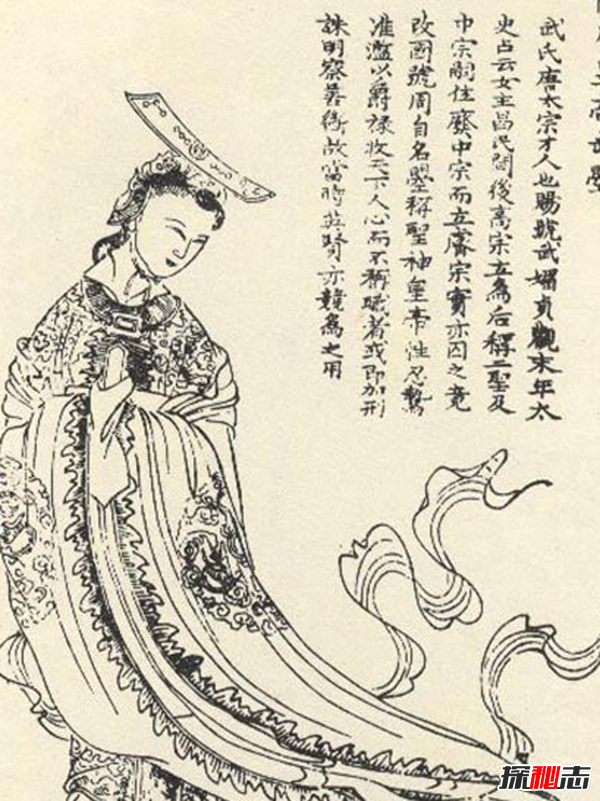 武氏唐太宗才人也賜號武媚貞觀末年太
史占云女主昌民間後高宗立為后稱二聖及
中宗嗣住廢中宗而立睿宗實亦囚之竟
改國號周自名曌稱聖神皇帝性忍鷙
准濫以爵祿收天下人心而不稱職者或即加刑
誅明察善斷故當時英賢亦競為之用
探秘志